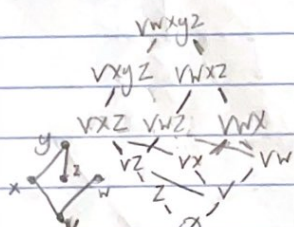 vwxyz
vxyz vwxz
vxz vwz vwx
y vz vx vw
x z w z v
v ∅